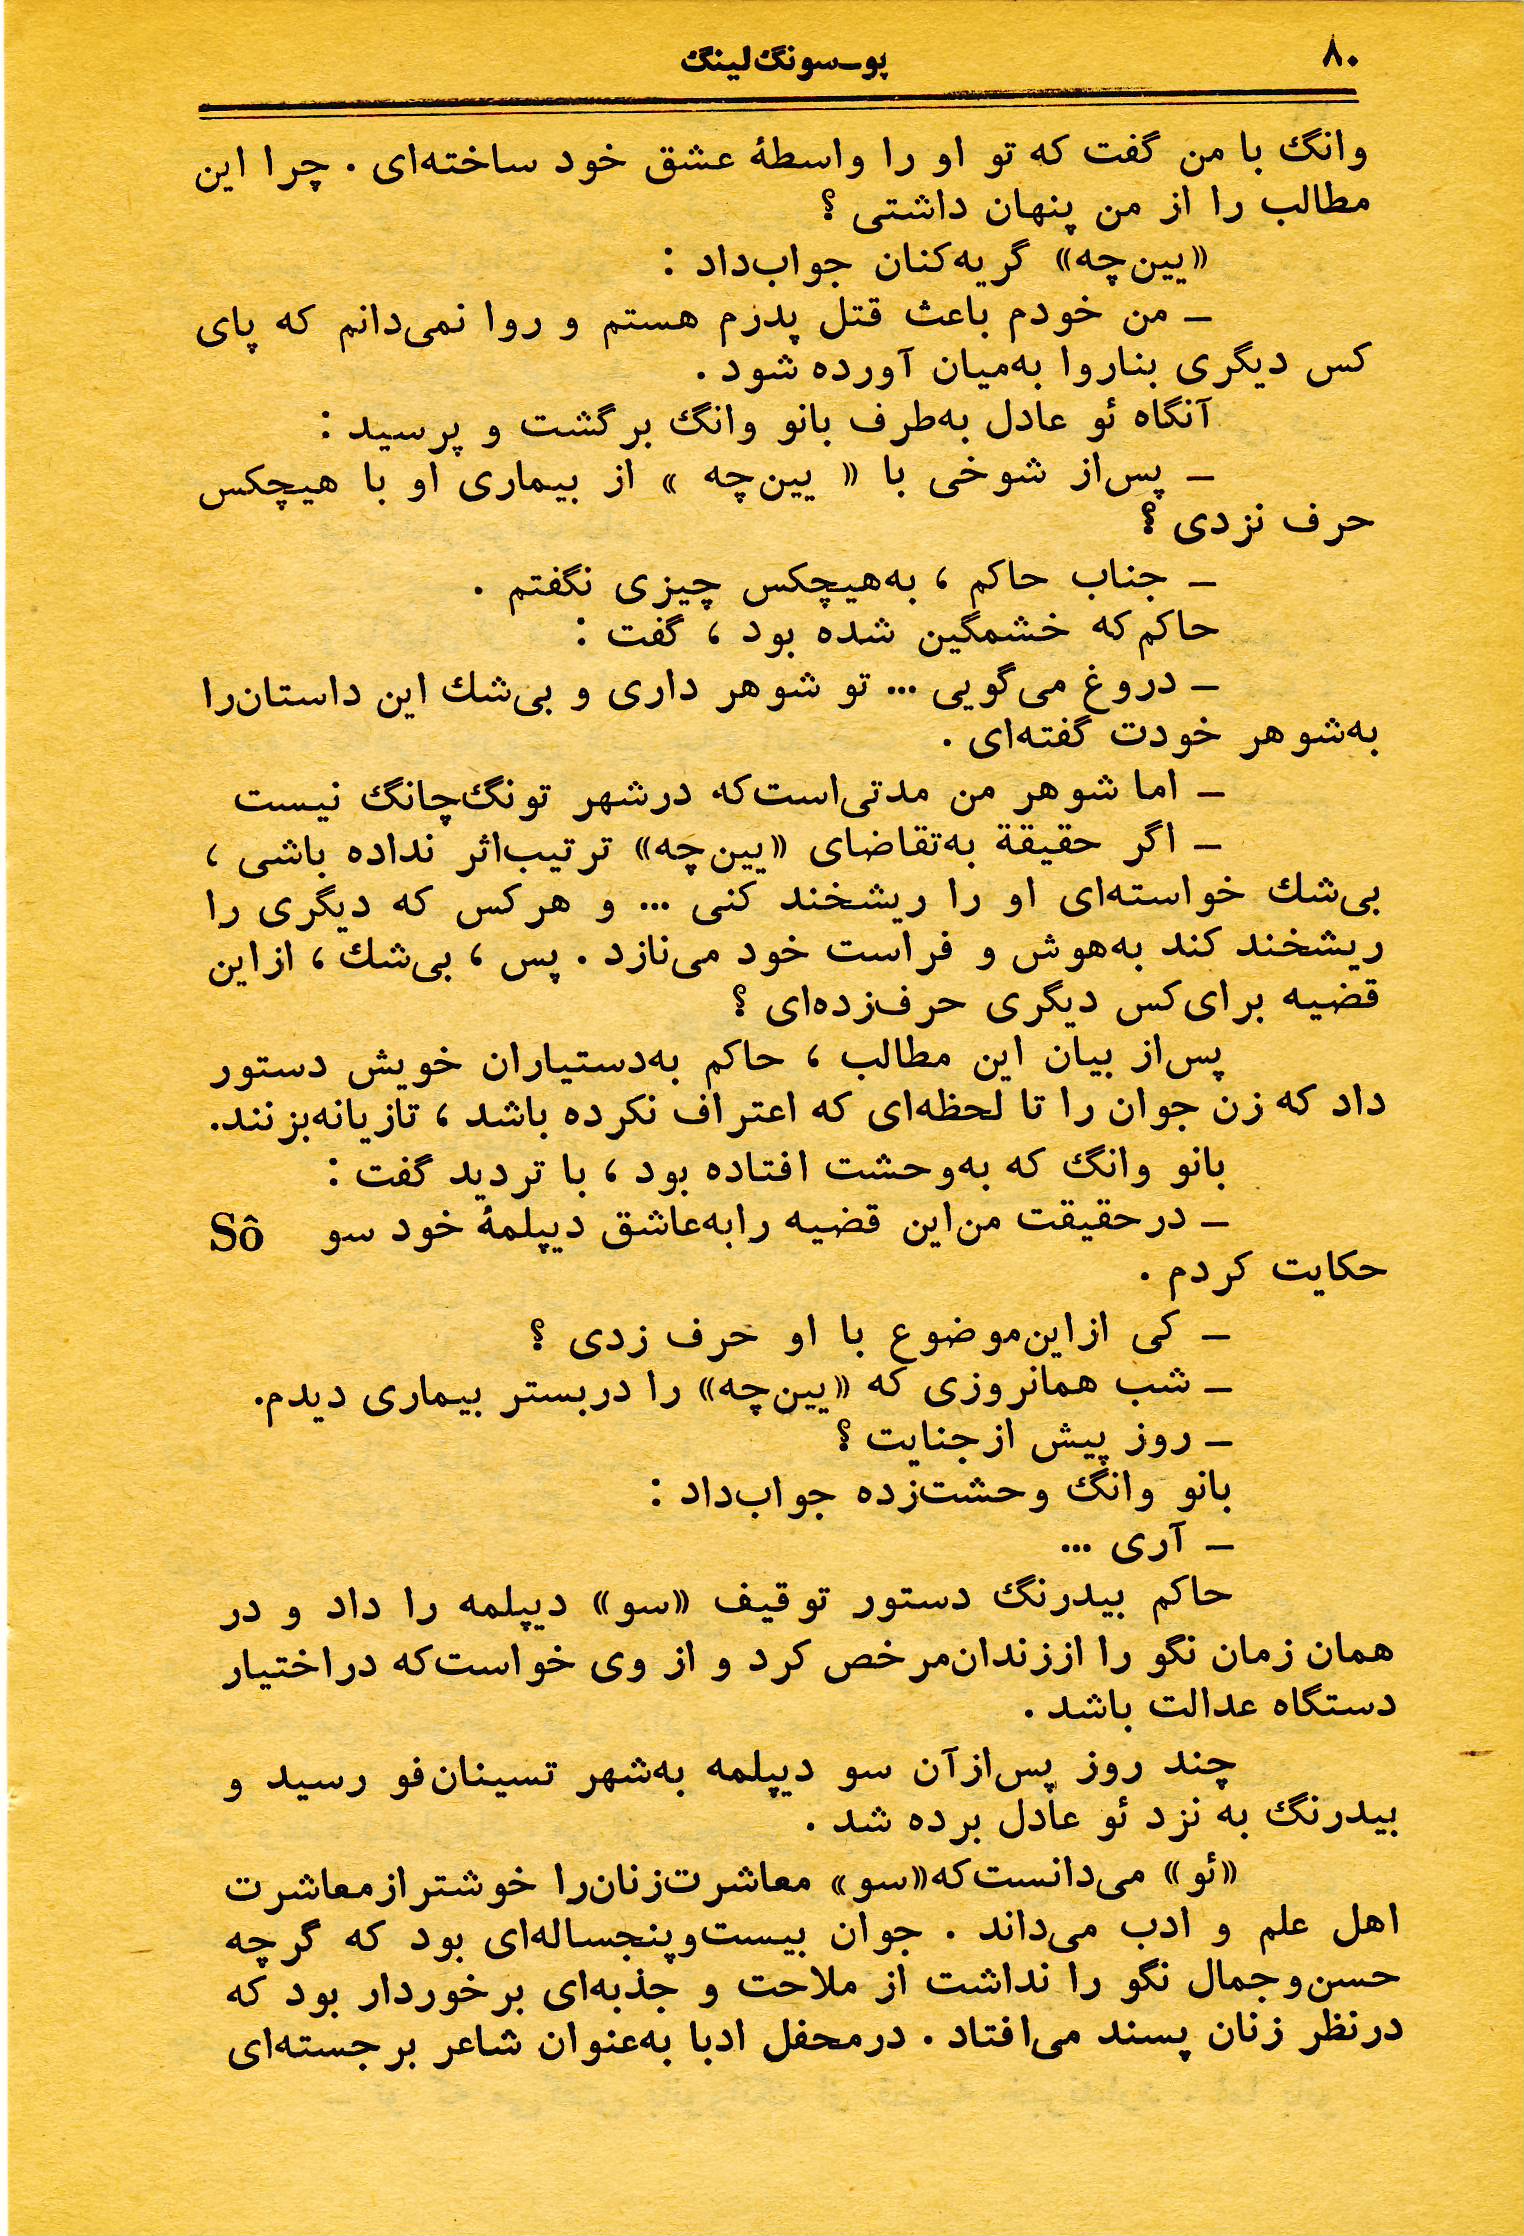 ۸۰
پو–سونگ‌لینگ
وانگ با من گفت که تو او را واسطهٔ عشق خود ساخته‌ای . چرا این
مطالب را از من پنهان داشتی ؟
«یین‌چه» گریه‌کنان جواب‌داد :
– من خودم باعث قتل پدرم هستم و روا نمی‌دانم که پای
کس دیگری بناروا به‌میان آورده شود .
آنگاه ئو عادل به‌طرف بانو وانگ برگشت و پرسید :
– پس‌از شوخی با « یین‌چه » از بیماری او با هیچکس
حرف نزدی ؟
– جناب حاکم ، به‌هیچکس چیزی نگفتم .
حاکم‌که خشمگین شده بود ، گفت :
– دروغ می‌گویی ... تو شوهر داری و بی‌شك این داستان‌را
به‌شوهر خودت گفته‌ای .
– اما شوهر من مدتی‌است‌که درشهر تونگ‌چانگ نیست
– اگر حقیقة به‌تقاضای «یین‌چه» ترتیب‌اثر نداده باشی ،
بی‌شك خواسته‌ای او را ریشخند کنی ... و هرکس که دیگری را
ریشخند کند به‌هوش و فراست خود می‌نازد . پس ، بی‌شك ، ازاین
قضیه برای‌کس دیگری حرف‌زده‌ای ؟
پس‌از بیان این مطالب ، حاکم به‌دستیاران خویش دستور
داد که زن جوان را تا لحظه‌ای که اعتراف نکرده باشد ، تازیانه‌بزنند.
بانو وانگ که به‌وحشت افتاده بود ، با تردید گفت :
– درحقیقت من‌این قضیه رابه‌عاشق دیپلمهٔ خود سو Sô
حکایت کردم .
– کی ازاین‌موضوع با او حرف زدی ؟
– شب همانروزی که «یین‌چه» را دربستر بیماری دیدم.
– روز پیش ازجنایت ؟
بانو وانگ وحشت‌زده جواب‌داد :
– آری ...
حاکم بیدرنگ دستور توقیف «سو» دیپلمه را داد و در
همان زمان نگو را اززندان‌مرخص کرد و از وی خواست‌که دراختیار
دستگاه عدالت باشد .
چند روز پس‌ازآن سو دیپلمه به‌شهر تسینان‌فو رسید و
بیدرنگ به نزد ئو عادل برده شد .
«ئو» می‌دانست‌که«سو» معاشرت‌زنان‌را خوشترازمعاشرت
اهل علم و ادب می‌داند . جوان بیست‌وپنجساله‌ای بود که گرچه
حسن‌وجمال نگو را نداشت از ملاحت و جذبه‌ای برخوردار بود که
درنظر زنان پسند می‌افتاد . درمحفل ادبا به‌عنوان شاعر برجسته‌ای